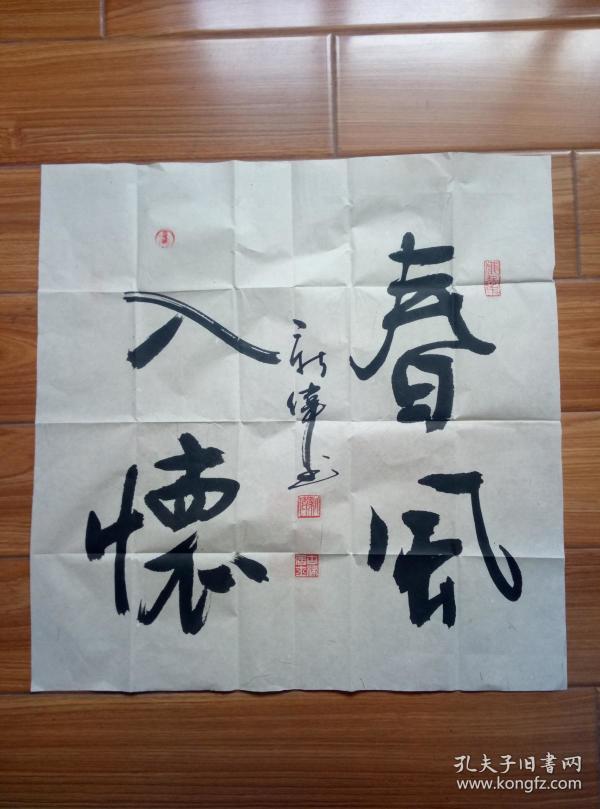 春风
入懷
新偉书
孔夫子旧書网
www.kongfz.com